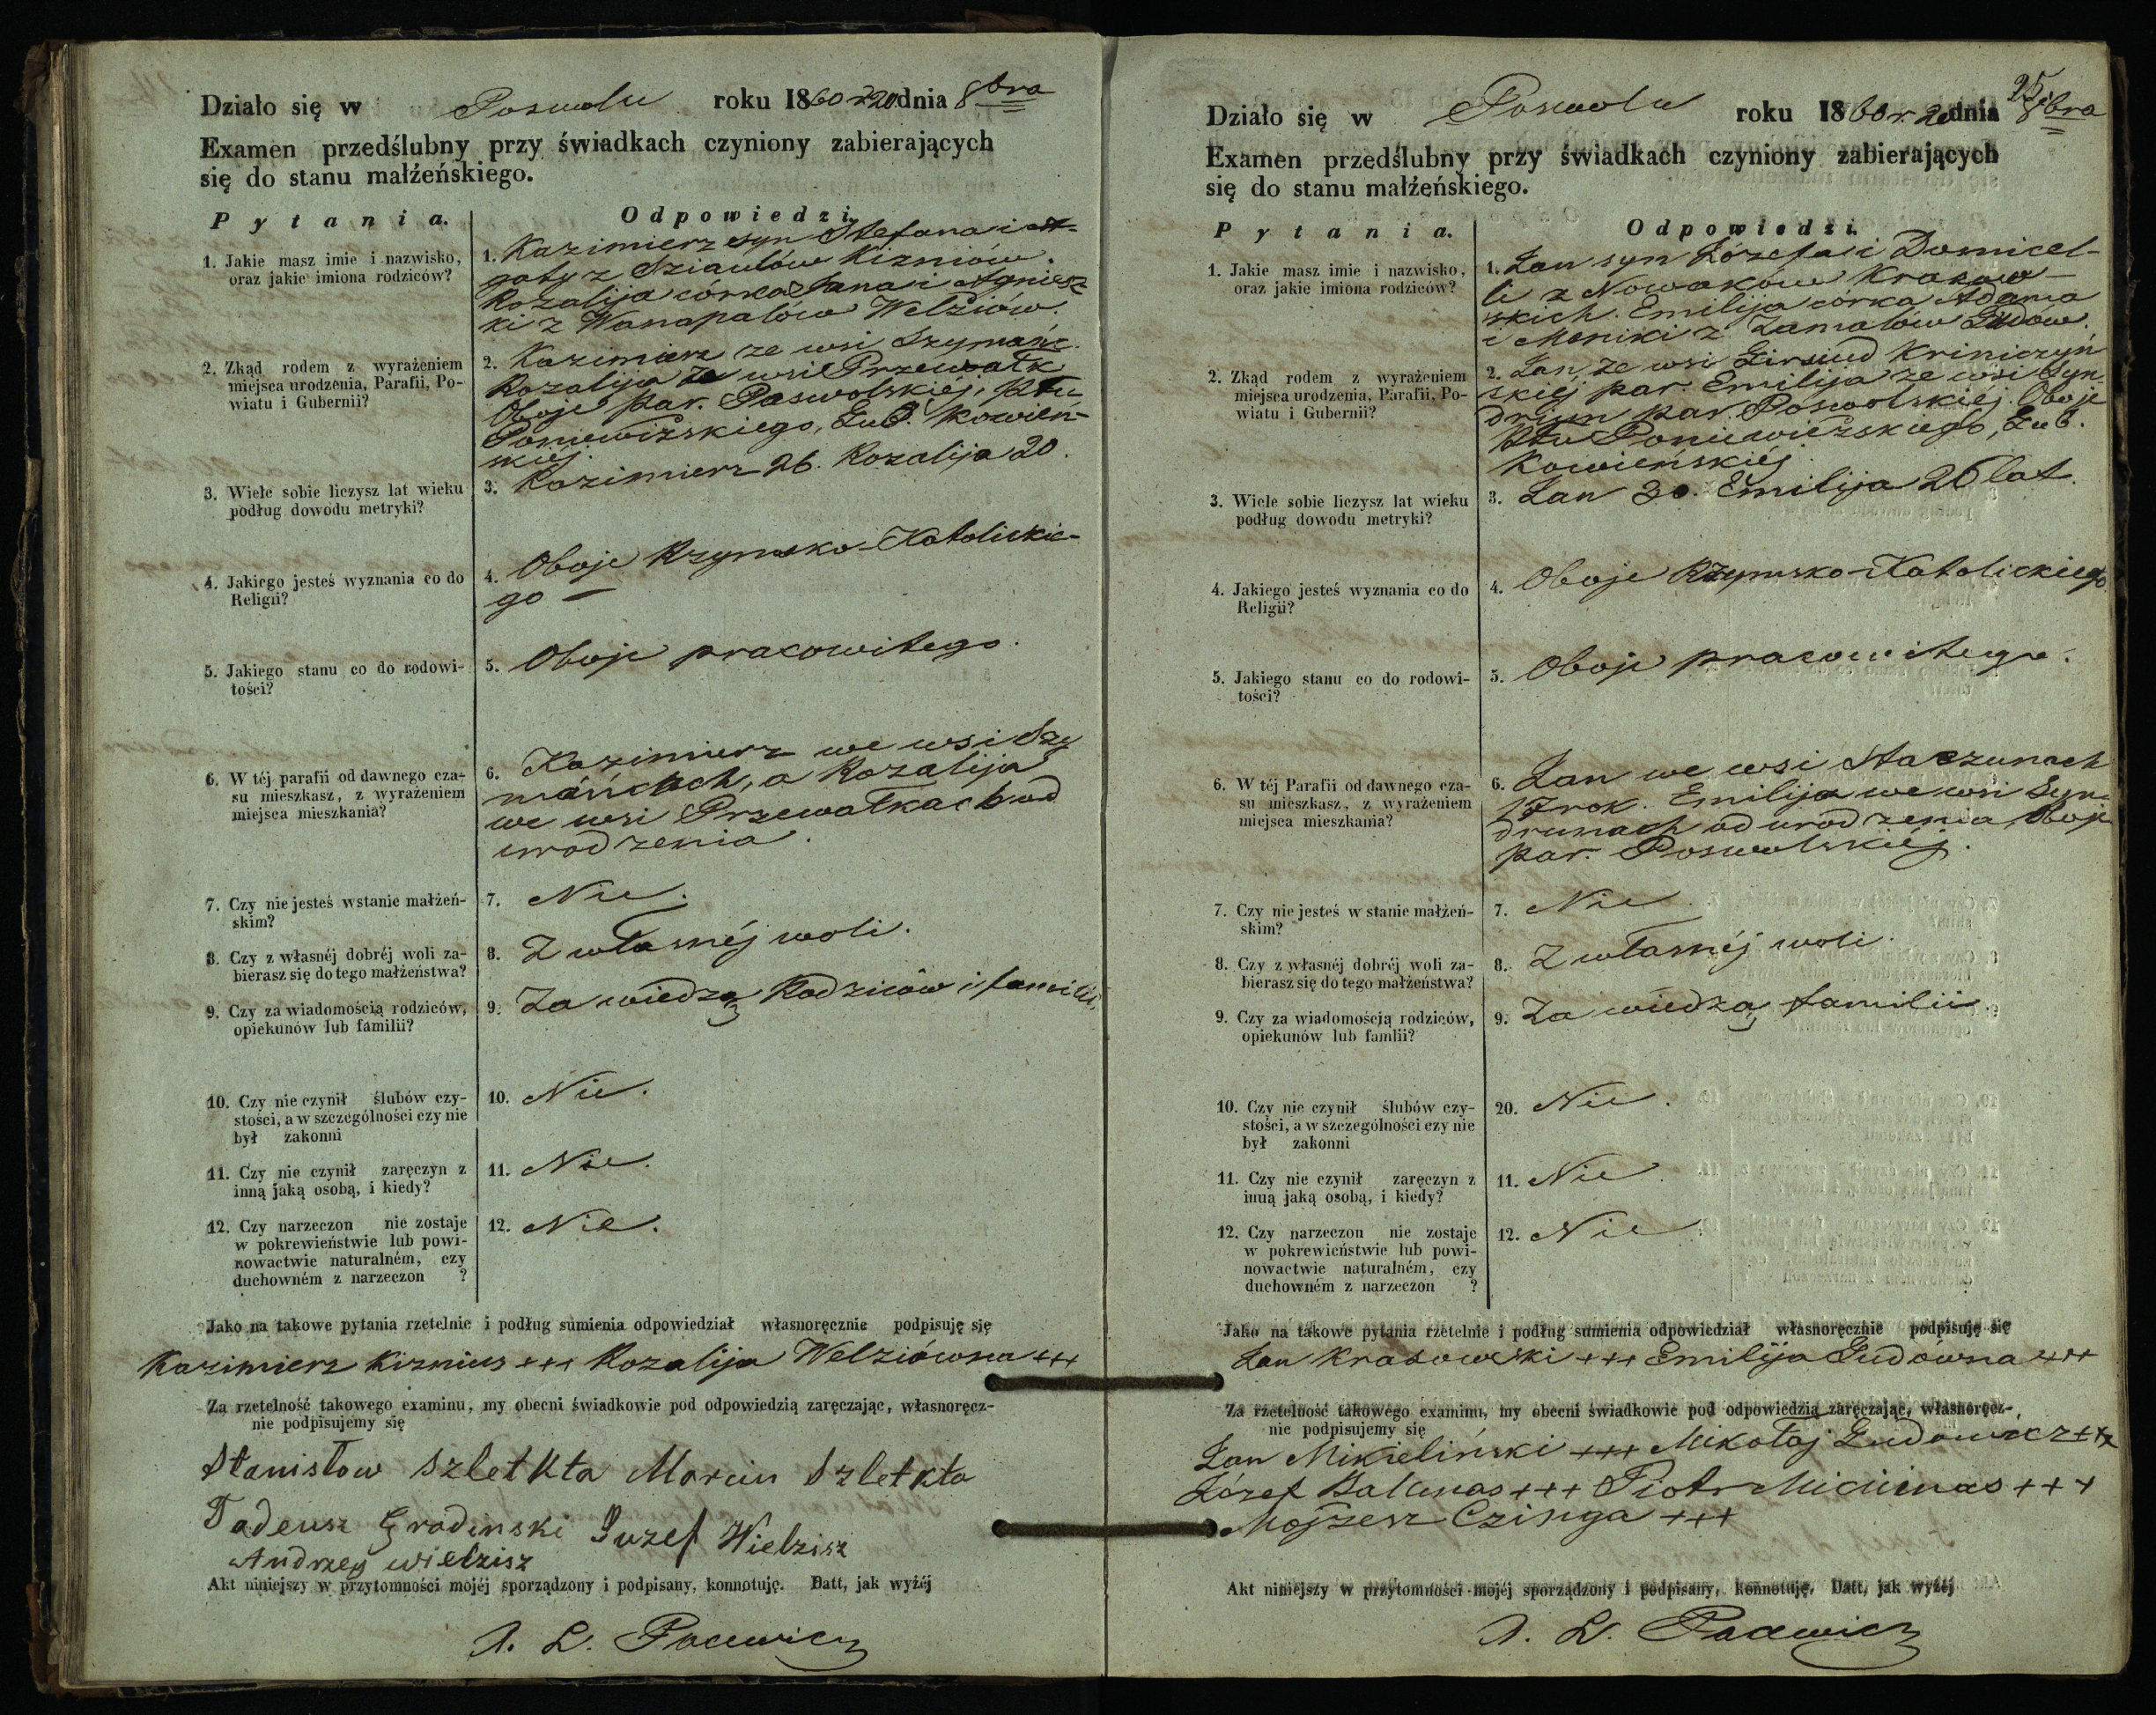 Działo się w Poswolu roku 1860 r. 20 dnia 8bra
Examen przedślubny przy świadkach czyniony zabierających
się do stanu małżeńskiego.
Pytania. Odpowiedzi.
1. Jakie masz imie i nazwisko,
oraz jakie imiona rodziców?
1. Kazimierz syn Stefana i A-
gaty z Sziaulów Kizniów.
Rozalija córka Jana i Agniesz
ki z Wanapalów Welziów.
2. Zkąd rodem z wyrażeniem
miejsca urodzenia, Parafii, Po-
wiatu i Gubernii?
2. Kazimierz ze wsi Szymańc
Rozalija ze wsi Przewałk
Oboje par. Poswolskiéj, Ptu
Poniewiżskiego, Gub. Kowień-
skiéj.
3. Wiele sobie liczysz lat wieku
podług dowodu metryki?
3. Kazimierz 26. Rozalija 20.
4. Jakiego jesteś wyznania co do
Religii?
4. Oboje Rzymsko-Katolickie-
go
5. Jakiego stanu co do rodowi-
tości?
5. Oboje pracowitego.
6. W téj parafii od dawnego cza-
su mieszkasz, z wyrażeniem
miejsca mieszkania?
6. Kazimierz we wsi Szy
mańcach, a Rozalija
we wsi Przewałkach od
urodzenia.
7. Czy nie jesteś w stanie małżeń-
skim?
7. Nie.
8. Czy z własnéj dobréj woli za-
bierasz się do tego małżeństwa?
8. Z własnéj woli.
9. Czy za wiadomością rodziców,
opiekunów lub familii?
9. Za wiedzą Rodziców i familii.
10. Czy nie czynił ślubów czy-
stości, a w szczególności czy nie
był zakonni
10. Nie.
11. Czy nie czynił zaręczyn z
inną jaką osobą, i kiedy?
11. Nie.
12. Czy narzeczon nie zostaje
w pokrewieństwie lub powi-
nowactwie naturalném, czy
duchowném z narzeczon ?
12. Nie.
Jako na takowe pytania rzetelnie i podług sumienia odpowiedział własnoręcznie podpisuję się
Kazimierz Kiznius +++ Rozalija Welziówna +++
Za rzetelność takowego examinu, my obecni świadkowie pod odpowiedzią zaręczając, własnoręcz-
nie podpisujemy się
Stanisław Szletkta Marcin Szletkta
Tadeusz Gradinski Juzef Wielzisz
Andrzey wielzisz
Akt niniejszy w przytomności mojéj sporządzony i podpisany, konnotuję. Datt, jak wyżéj
A. L. Pacewicz
25
Działo się w Poswolu roku 1860 r. 20 dnia 8bra
Examen przedślubny przy świadkach czyniony zabierających
się do stanu małżeńskiego.
Pytania. Odpowiedzi.
1. Jakie masz imie i nazwisko,
oraz jakie imiona rodziców?
1. Jan syn Józefa i Domicel-
li z Nowaków Krasow-
skich. Emilija córka Adama
i Moniki z Zamalów Gudów.
2. Zkąd rodem z wyrażeniem
miejsca urodzenia, Parafii, Po-
wiatu i Gubernii?
2. Jan ze wsi Kriniczyń
skiéj par. Emilija ze wsi Syn-
driun par. Poswolskiéj. Oboje
Ptu Poniewieżskiego, Gub.
Kowieńskiéj.
3. Wiele sobie liczysz lat wieku
podług dowodu metryki?
3. Jan 30. Emilija 26 lat.
4. Jakiego jesteś wyznania co do
Religii?
4. Oboje Rzymsko-Katolickiego.
5. Jakiego stanu co do rodowi-
tości?
5. Oboje pracowitego.
6. W téj Parafii od dawnego cza-
su mieszkasz, z wyrażeniem
miejsca mieszkania?
6. Jan we wsi Staczunach
rok. Emilija we wsi Syn-
drunach od urodzenia, Oboje
par. Poswolskiéj.
7. Czy nie jesteś w stanie małżeń-
skim?
7. Nie.
8. Czy z własnéj dobréj woli za-
bierasz się do tego małżeństwa?
8. Z własnéj woli.
9. Czy za wiadomością rodziców,
opiekunów lub familii?
9. Za wiedzą familii.
10. Czy nie czynił ślubów czy-
stości, a w szczególności czy nie
był zakonni
20. Nie.
11. Czy nie czynił zaręczyn z
inną jaką osobą, i kiedy?
11. Nie.
12. Czy narzeczon nie zostaje
w pokrewieństwie lub powi-
nowactwie naturalném, czy
duchowném z narzeczon ?
12. Nie.
Jako na takowe pytania rzetelnie i podług sumienia odpowiedział własnoręcznie podpisuję się
Jan Krasowski +++ Emilija Gudówna +++
Za rzetelność takowego examinu, my obecni świadkowie pod odpowiedzią zaręczając, własnoręcz-
nie podpisujemy się
Jan Mikieliński +++ Mikołaj Gudowicz +++
Józef Balunas +++ Piotr Miciunas +++
Mojżesz Czinga +++
Akt niniejszy w przytomności mojéj sporządzony i podpisany, konnotuję. Datt, jak wyżéj
A. L. Pacewicz